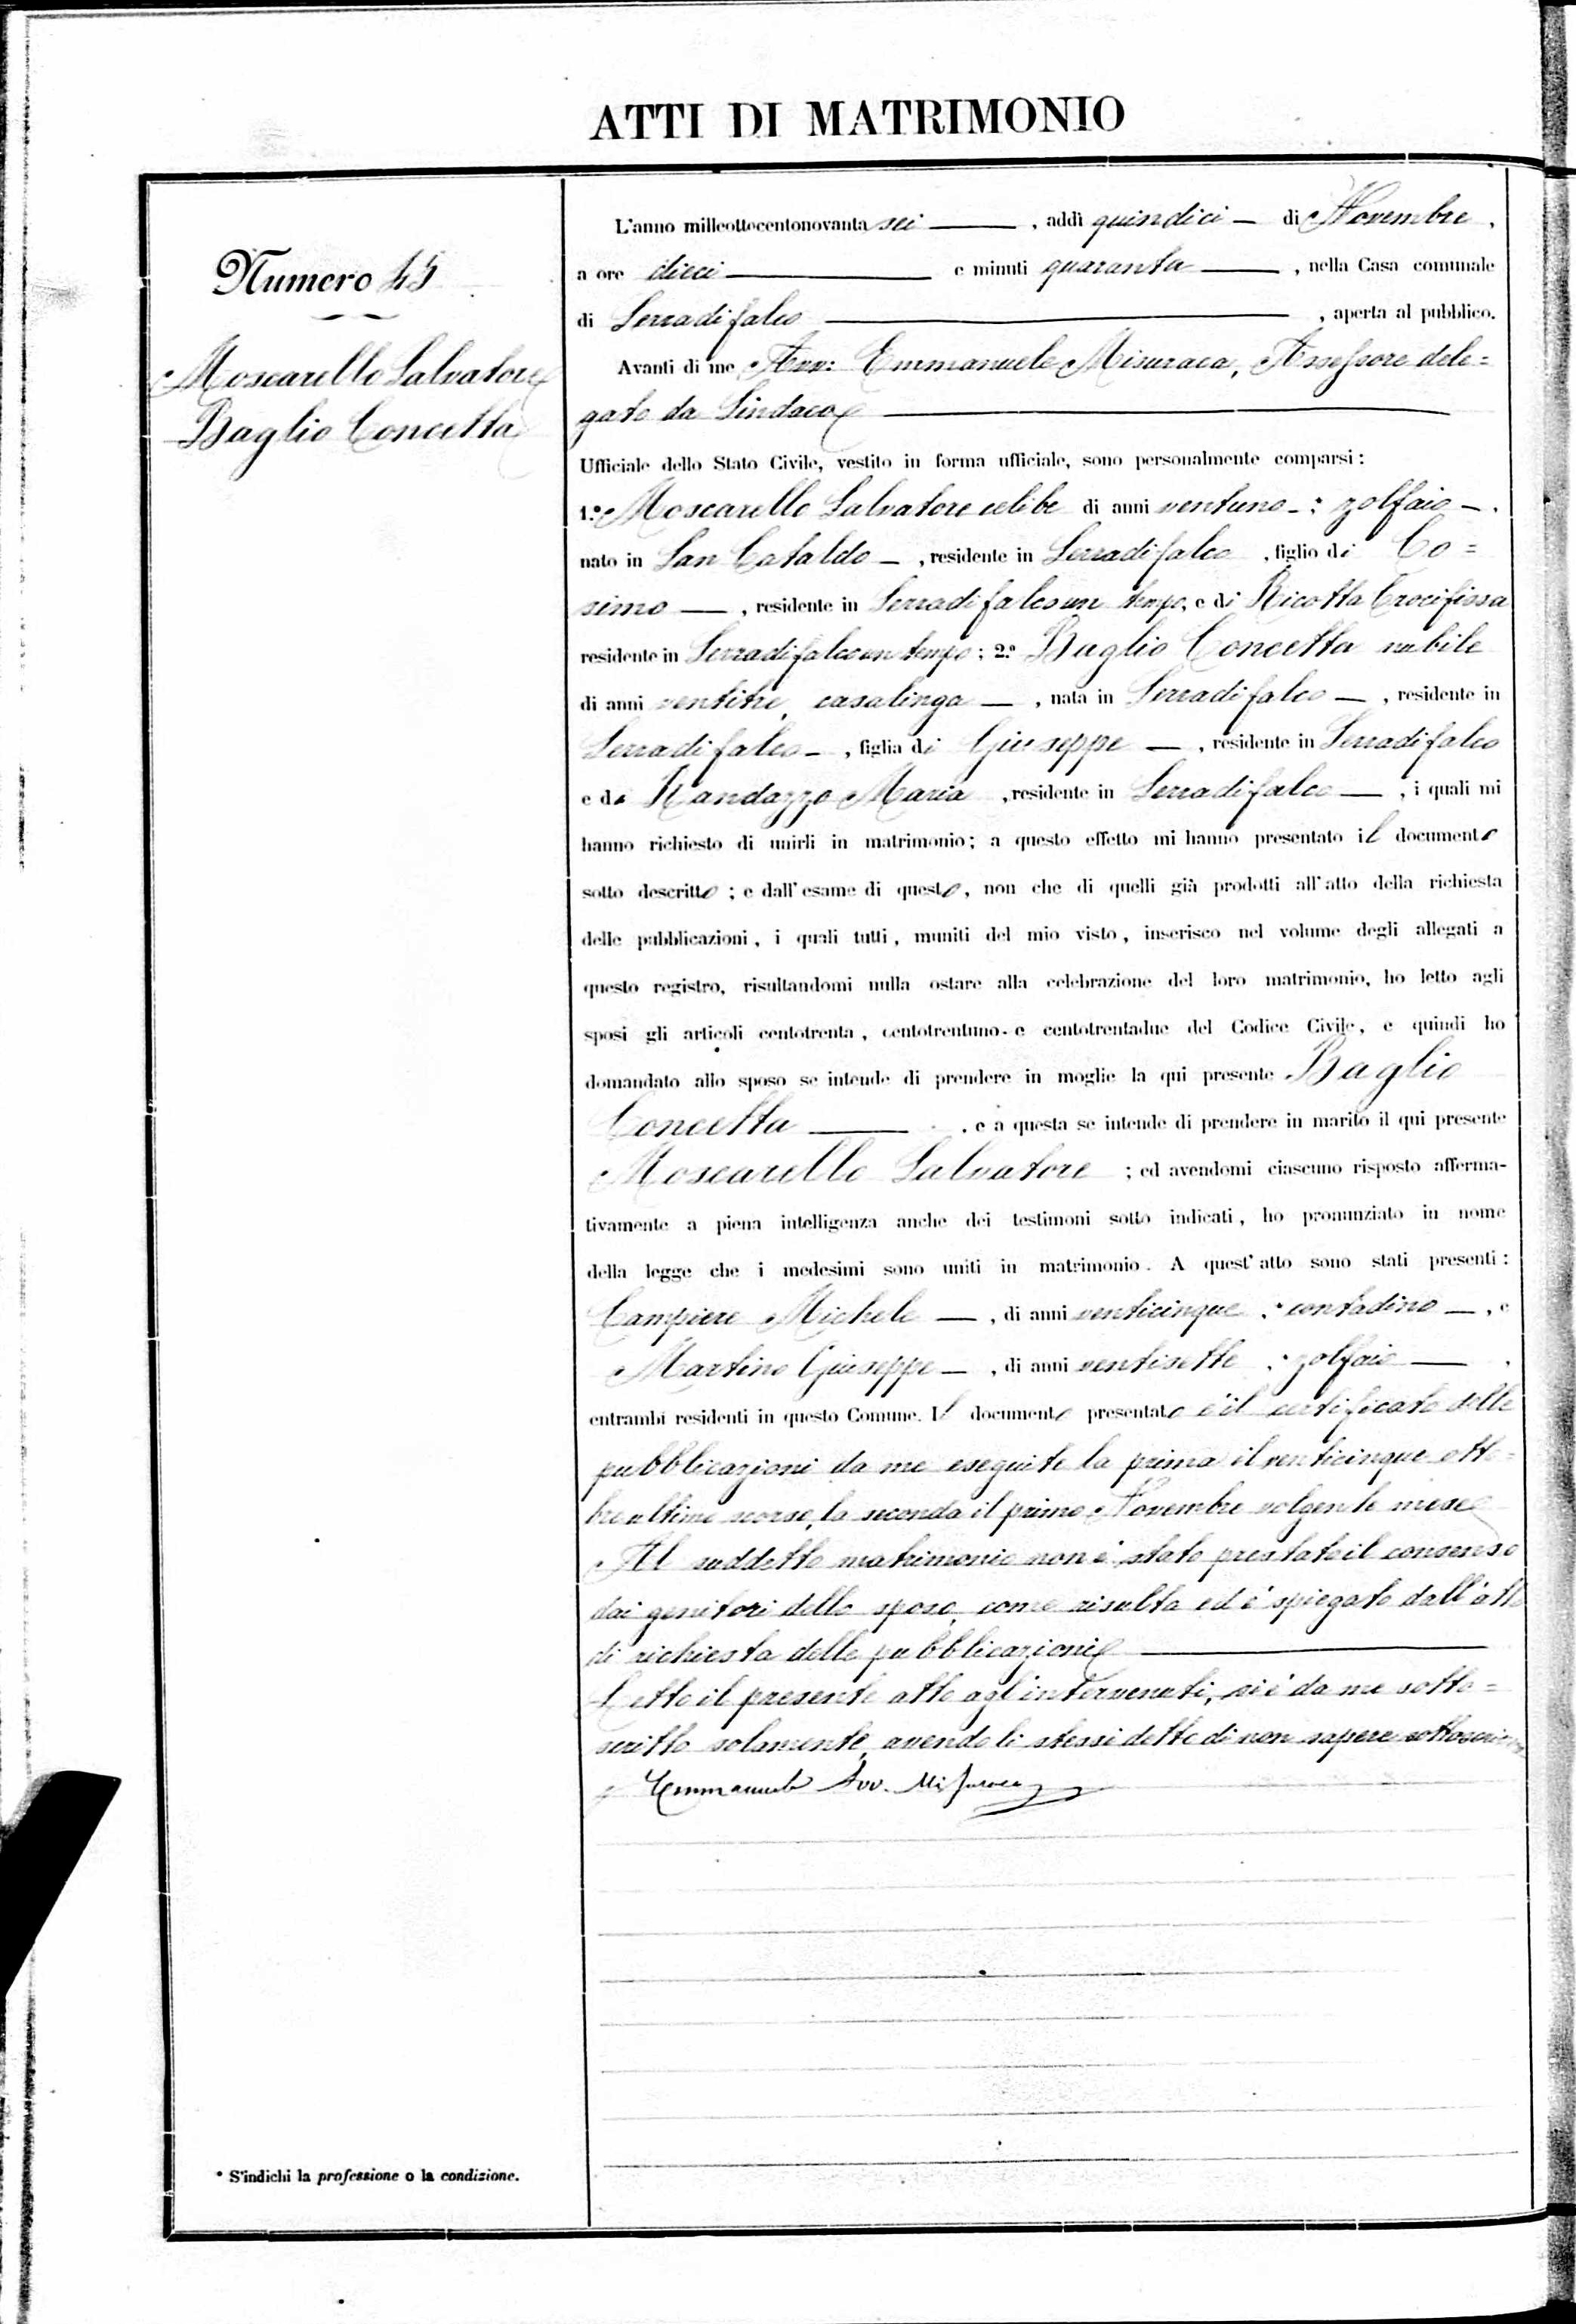 ATTI DI MATRIMONIO
Numero 45
Moscarello Salvatore
Baglio Concetta
L'anno milleottocentonovanta sei, addì quindici di Novembre,
a ore dieci e minuti quaranta, nella Casa comunale
di Serradifalco, aperta al pubblico.
Avanti di me Avv: Emmanuele Misuraca, Assessore dele=
gato da Sindaco
Ufficiale dello Stato Civile, vestito in forma ufficiale, sono personalmente comparsi:
1.º Moscarello Salvatore celibe di anni ventuno; zolfaio,
nato in San Cataldo, residente in Serradifalco, figlio di Co=
simo, residente in Serradifalco un tempo, e di Ricotta Crocifissa
residente in Serradifalco un tempo; 2.º Baglio Concetta nubile
di anni ventitre, casalinga, nata in Serradifalco, residente in
Serradifalco, figlia di Giuseppe, residente in Serradifalco
e da Randazzo Maria, residente in Serradifalco, i quali mi
hanno richiesto di unirli in matrimonio; a questo effetto mi hanno presentato il documento
sotto descritto; e dall'esame di questo, non che di quelli già prodotti all'atto della richiesta
delle pubblicazioni, i quali tutti, muniti del mio visto, inserisco nel volume degli allegati a
questo registro, risultandomi nulla ostare alla celebrazione del loro matrimonio, ho letto agli
sposi gli articoli centotrenta, centotrentuno e centotrentadue del Codice Civile, e quindi ho
domandato allo sposo se intende di prendere in moglie la qui presente Baglio
Concetta, e a questa se intende di prendere in marito il qui presente
Moscarello Salvatore; ed avendomi ciascuno risposto afferma-
tivamente a piena intelligenza anche dei testimoni sotto indicati, ho pronunziato in nome
della legge che i medesimi sono uniti in matrimonio. A quest'atto sono stati presenti:
Campiere Michele, di anni venticinque, contadino, e
Martino Giuseppe, di anni ventisette, zolfaio,
entrambi residenti in questo Comune. Il documento presentato è il certificato delle
pubblicazioni da me eseguite la prima il venticinque otto=
bre ultimo scorso, la seconda il primo Novembre volgente mese
Al suddetto matrimonio non è stato prestato il consenso
dai genitori dello sposo, come risulta ed è spiegato dall'atto
di richiesta delle pubblicazioni
Letto il presente atto agl'intervenuti, si è da me sotto=
scritto solamente, avendo li stessi detto di non sapere sottoscrivere
Emmanuele Avv. Misuraca
* S'indichi la professione o la condizione.